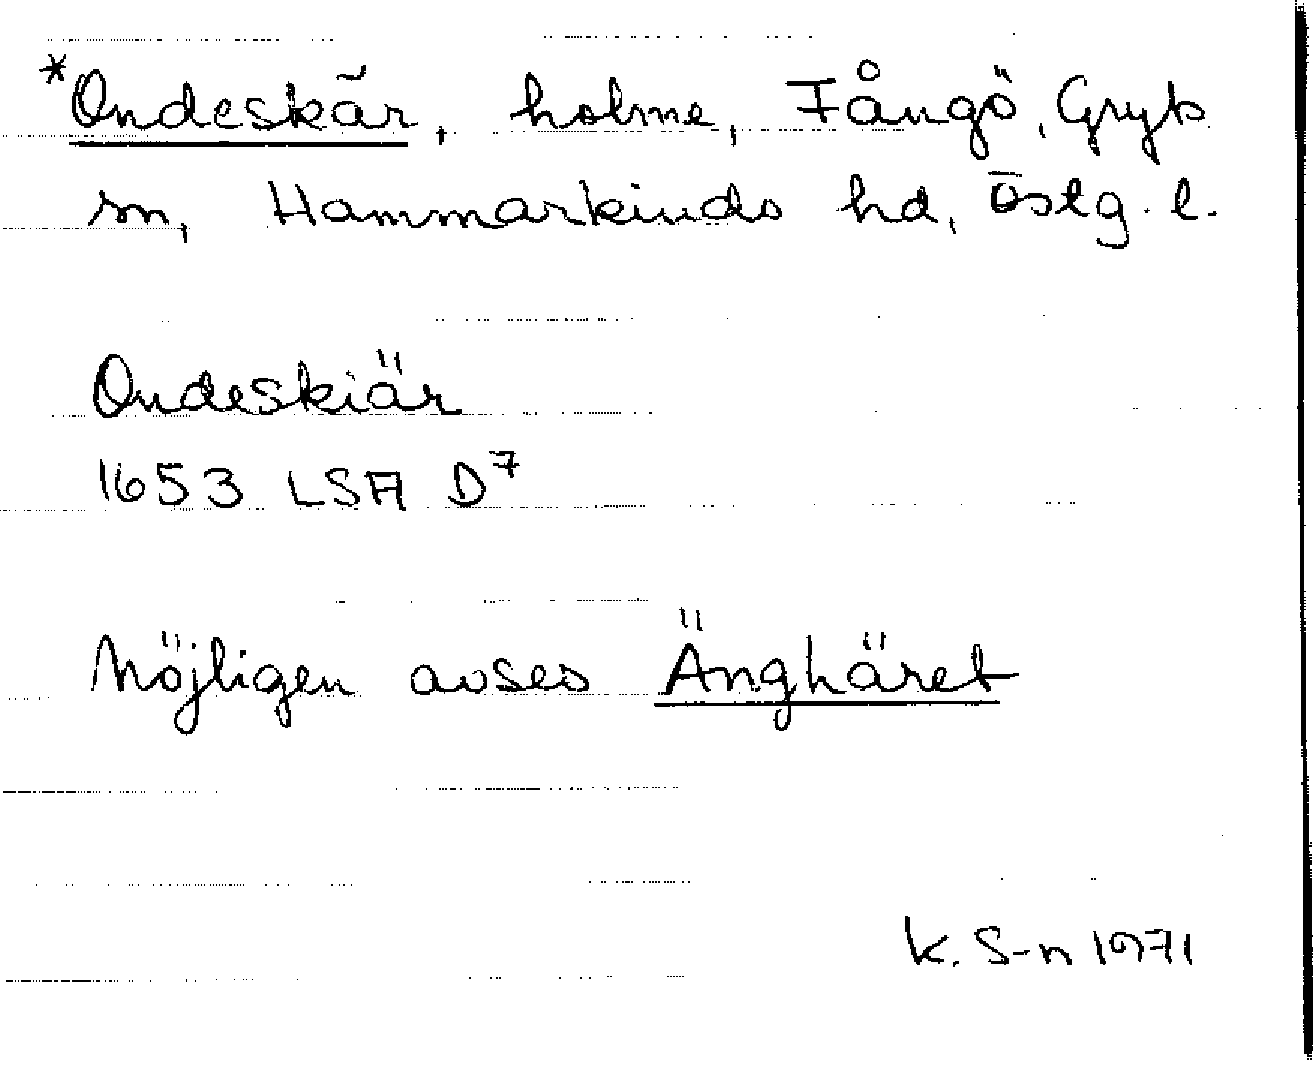 *Ondeskär, holme, Fångö, Gryts
sn, Hammarkinds hd, Östg. l.
Ondeskiär
1653 LSA D7
Möjligen avses Änghäret
K. S-n 1971